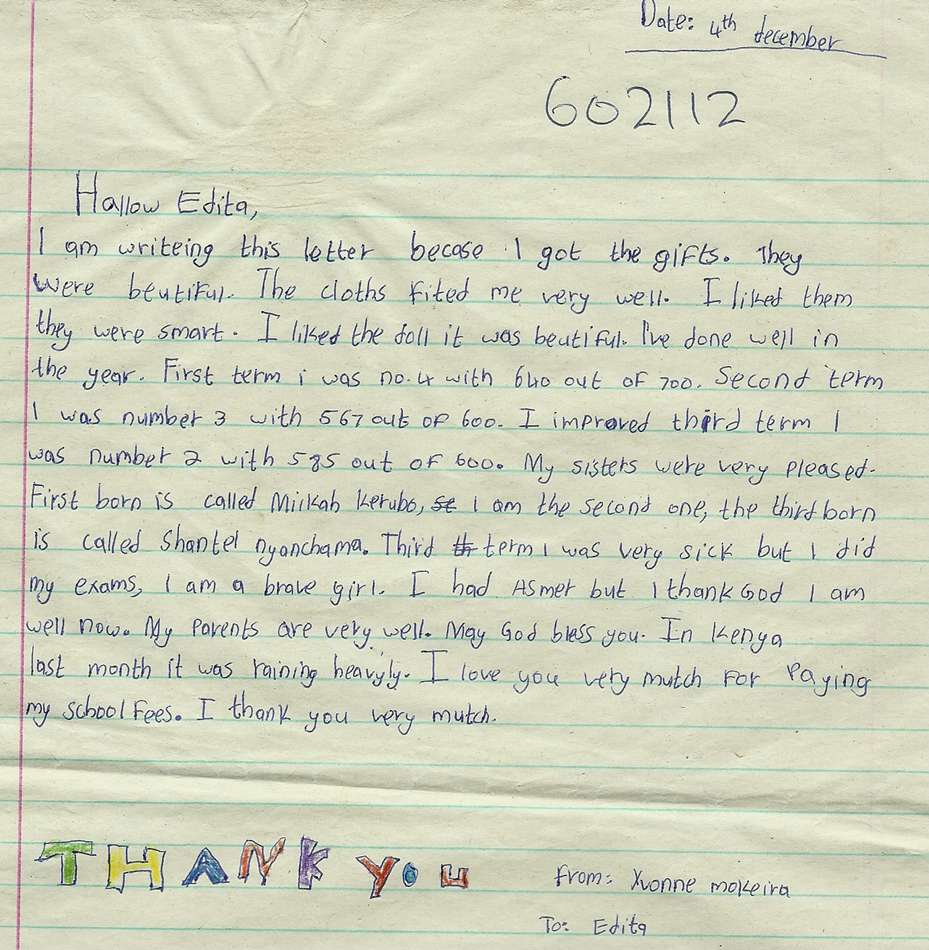 Date: 4th december
602112
Hallow Edita,
I am writeing this letter becase I got the gifts. They
were beutiful. The cloths fited me very well. I liked them
they were smart. I liked the doll it was beutiful. I've done well in
the year. First term i was no. 4 with 640 out of 700. Second term
I was number 3 with 567 out of 600. I improved third term I
was number 2 with 585 out of 600. My sisters were very pleased.
First born is called Milkah Kerubo, se I am the second one, the third born
is called Shantel nyanchama. Third th term I was very sick but I did
my exams, I am a brave girl. I had Asmer but I thank God I am
well now. My parents are very well. May God bless you. In Kenya
last month it was raining heavyly. I love you very mutch for Paying
my school fees. I thank you very mutch.
THANK YOU
from: Yvonne mokeira
To: Edita